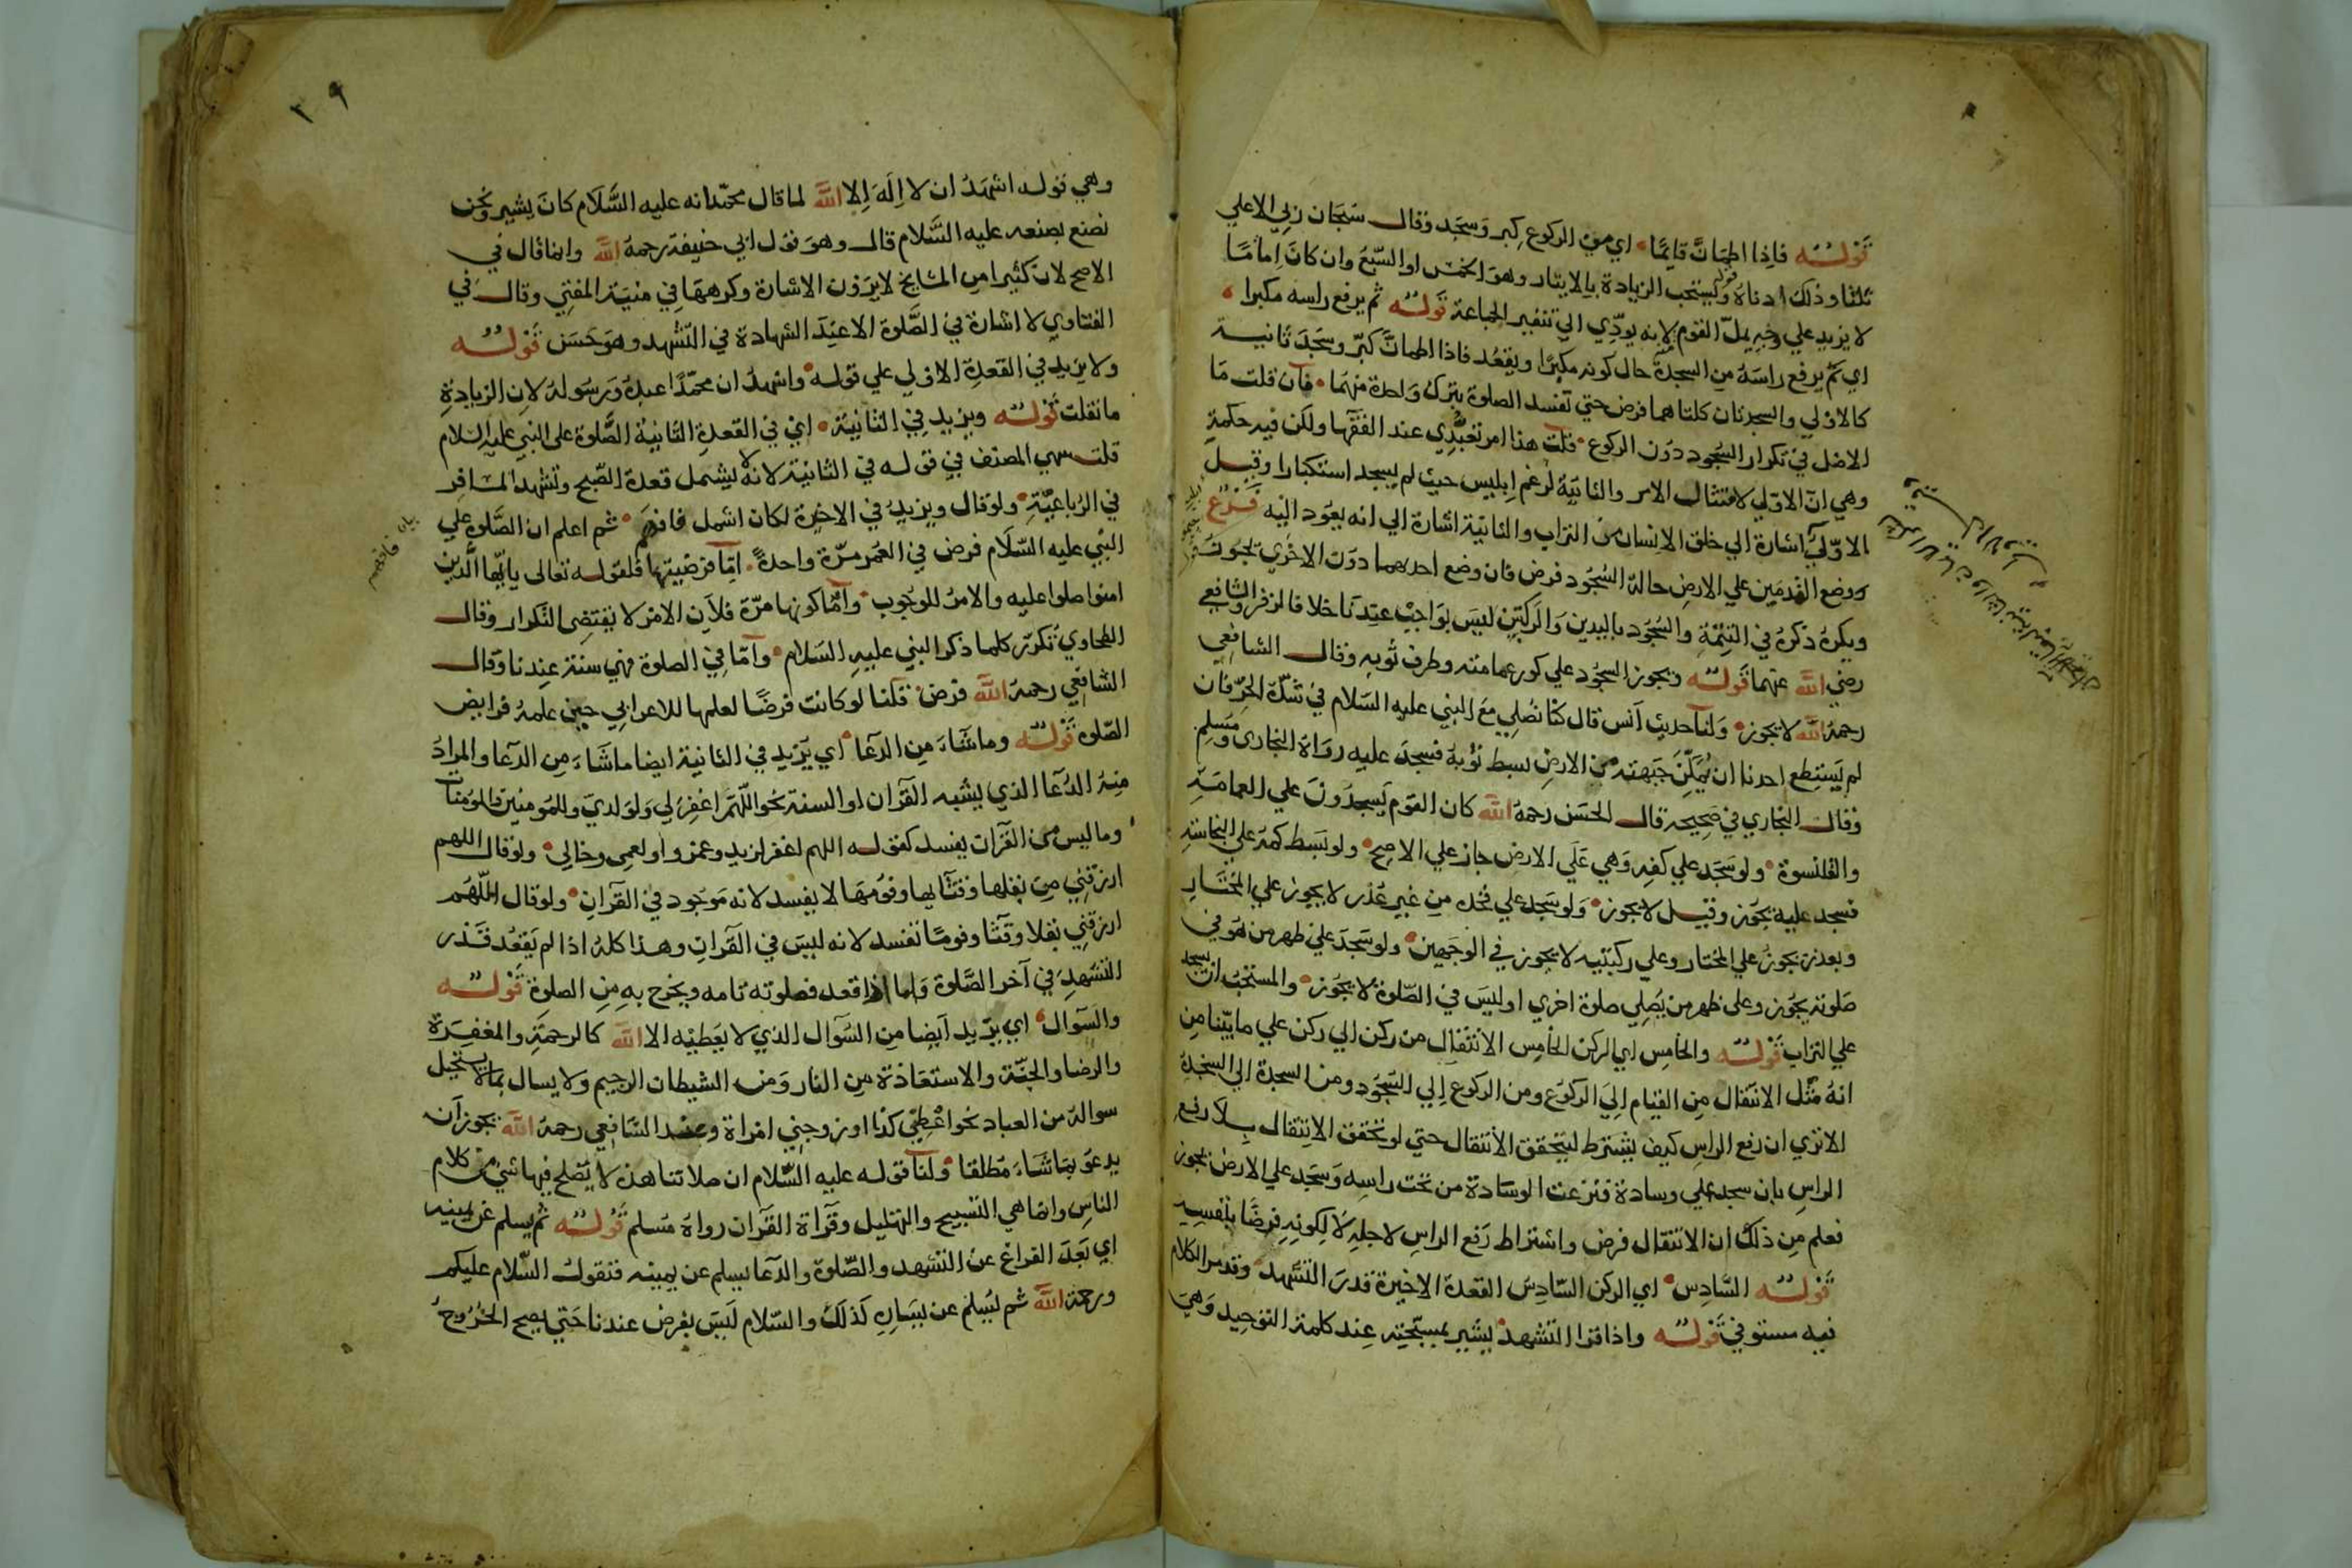 قوله فاذا اطمأن قايمًا اي من الركوع كبر وسجد وقال سبحان ربي الاعلي
ثلثا وذلك ادناه قوله ويستحب الزيادة بالايتار وهو الخمس او السبع وان كان اِمامًا
لا يزيد علي وجه يملّ القوم لانه يودّي الي تنفير الجماعة قوله ثم يرفع راسه مكبرا
اي ثم يرفع راسَهُ من السجدة حال كونه مكبرًا ويقعُد فاذا اطمأنّ كبّر وسجَدَ ثانية
كالاولي والسجدتان كلتاهما فرض حتي تفسد الصلوة بترك واحدة منهما فان قلت مَا
الاصل في تكرار السُجود دوُن الركوع قلت هذا امر تعبّدي عند الفقها ولكن فيه حكمةٍ
وهي انّ الاوّلي لامتثال الامر والثانيّة لرغم اِبليس حيث لم يسجد استكبارا وقيل
الاوّليّ اشارة الي خلق الانسان من التراب والثانية اشارة الي انه يعوُد اليه فرع
ووضع القدمَين علي الارض حالة السُجُود فرض فان وضع احدهما دوَن الاخري تجوز
ويكره ذكرهُ في التتِمّة والسُجُود باليدين وَالركبتين ليسَ بوَاجبٌ عندنا خلافا لزفر والشافعي
رضي الله عنهما قوله ويجوز السجُود علي كور عمامته وطرف ثوبه وقال الشافعي
رحمهُ الله لا يجوز وَلنا حديث اَنس قال كُنّا نُصلي معَ النبي عليه السَلام في شدّة الحرّ فان
لم يَستِطِع احدنا ان يُمكِّنَ جَبهته من الارض بسط ثوبَهُ فسجدَ عليه روَاهُ البخارى ومسلم
وقال البخاري في صَحِيحه قال الحسَن رحمهُ الله كان القوم يَسجدوُنَ علي العمامَةِ
والقلنسوة ولو سَجَد علي كفه وَهي عَلَي الارض جاز علي الاصح ولو بَسَط كمّهُ علي النجاسَةِ
فسجد عليه يجَوز وقيل لا يجوز وَلو سَجَد علي فخده من غير عُذر لا يجوز علي المختَار
وبعذر يجوزُ علي المختار وعلي ركبتيه لا يجوز في الوجَهين ولو سَجَدَ علي ظهر من هوُ في
صَلوته يجُوز وعلى ظهر من يُصلِي صلوة اخري او ليسَ في الصّلوة لا يجُوز والمستحبُ ان يسجد
علي التراب قوله والخامِس اي الركن الخامِس الانتقال من ركن الي ركن علي ما بيّنا من
انهُ مثل الانتقال من القيام اِليَ الركوَع ومن الركوع اِلي السّجُود ومن السجدة الي السجدةِ
الا تري ان رفع الراسِ كيف يشترط ليتحقق الانتقال حتي لو تحقق الانتقال بلا رفع
الراسِ بان سجد علي وسادة فنزعت الوسَادة من تحت راسِه وَسَجد علي الارض يجوز
فعلم مِن ذلك ان الانتقال فرض واشتراط رَفع الراسِ لاجلهِ لا لكونِهِ فرضًا بنفسِهِ
قوله السّادِس اي الركن السّادِسُ القعدة الاخيرة قدرَ التشّهد وقد مر الكلام
فيه مستوفي قوله واذا قرا التشهد يشير بمسبّحته عند كلمة التوحيد وَهيَ
٢٩
وهي قوله اشهَدُ ان لا اِلَهَ اِلا الله لما قال محمّد انه عليه السَّلَام كانَ يشير ونحن
نصنع بصنعه عليه السَّلام قال وهوَ قول ابي حنيفة رحمهُ الله وانما قال في
الاصح لان كثيرا من المشايخ لا يرَوْن الاشارة وكرههَا في منيَة المفتِي وقال في
الفتاوي لا اشارة في الصَّلوة الا عِندَ الشهادة في التّشهد وهوَ حَسَن قوله
ولا يزيد في القعدةِ الاولي علي قوله واشهدُ ان محمّدًا عبدهُ وَرسُولهُ لان الزيادةِ
ما نقلت قوله ويزيد في الثانيَة اي في القعدةِ الثانية الصَّلوة على النبي عليه السلام
قلت سهي المصنف في قوله في الثانية لانهُ لا يشمل قعدة الصّبح وتشهد المسافِر
في الرُباعيّةِ ولو قال ويزيدُ في الاخيرة لكان اشمل فافهم ثم اعلم ان الصَّلوة علي
النبي عليه السّلَام فرض في العُمر مرّة واحدةً امّا فرضيتها فلقوله تعالى يا ايّها الَّذين
امنوا صلوا عليه والامرُ للوُجوب وامّا كونها مرّة فلاَن الامر لا يقتضِى التكرار وقال
الطحاويُ تكرّر كلما ذكر النبي عليهِ السَلام وامّا فِي الصلوة فهي سنة عِندنا وقال
الشافعي رحمهُ الله فرض قلنا لو كانت فرضًا لعلمها للاعرابي حين علمهُ فرايض
الصّلوة قوله وما شَاءَ من الدعا اي يَزيد في الثانية ايضا ما شَاءَ مِن الدّعا والمرادُ
منهُ الدُعا الذي يشبه القرآن او السنة نحو اللّهمّ اغفِر لي وَلوَلديّ وللمُومنين والمُومنات
وما ليس من القرآن يفسد كقوله اللهم اغفر لزيد وعمرو او لعمي وخالي ولو قال اللهم
ارزقني من بقلها وقثّايها وفوُمهَا لا يفسد لانه مَوجُود في القرآنِ ولو قال اللّهُم
ارزقني بقلا وقثّا وفومًا تفسد لانه ليسَ في القرآنِ وهذا كلهُ اذا لم يَقعُد قَدر
التشهدِ في آخر الصّلوة وَاما اذا قعد فصلوته تامه ويخرج بهِ من الصلوة قوله
والسوَال اي يزيد اَيضا من السُؤال الذي لا يَعطيْه الا الله كالرحمَةِ والمغفِرَة
والرضا والجنّة والاستعَاذة مِن النار وَمن الشيطان الرجيم ولا يسال بما لا يستحيل
سوالهُ من العباد نحو اَعْطِني كذا او زوجني امرَاة وعند الشافعي رحمهُ الله يجوز اَن
يدعوَ بمَا شَاءَ مُطلقا ولنا قوله عليه السَّلام ان صلاتنا هذه لا يَصْلح فيها شئ من كلام
الناسِ وانما هي التسبيح والتهليل وقرَاة القرآن رواهُ مُسلم قوله ثم يسلم عن يمينه
اي بَعدَ الفراغ عن التشهد والصَّلوة والدَعا يسلم عن يمِينه فتقول السّلام عليكم
ورحمة الله ثم يُسِلم عن يسَارِهِ كذلك والسّلام ليسَ بفرض عندنا حَتي يصح الخُرُوجُ